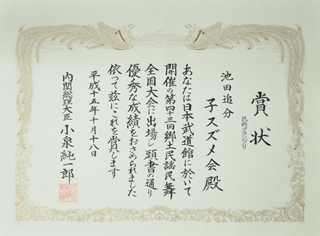 賞状
民謡グランプリ
池田追分
子スズメ会殿
あなたは日本武道館に於いて
開催の第四十三回郷土民謡民舞
全国大会に出場し頭書の通り
優秀な成績をおさめられました
依って茲にこれを賞します
平成十五年十月十八日
内閣総理大臣 小泉純一郎